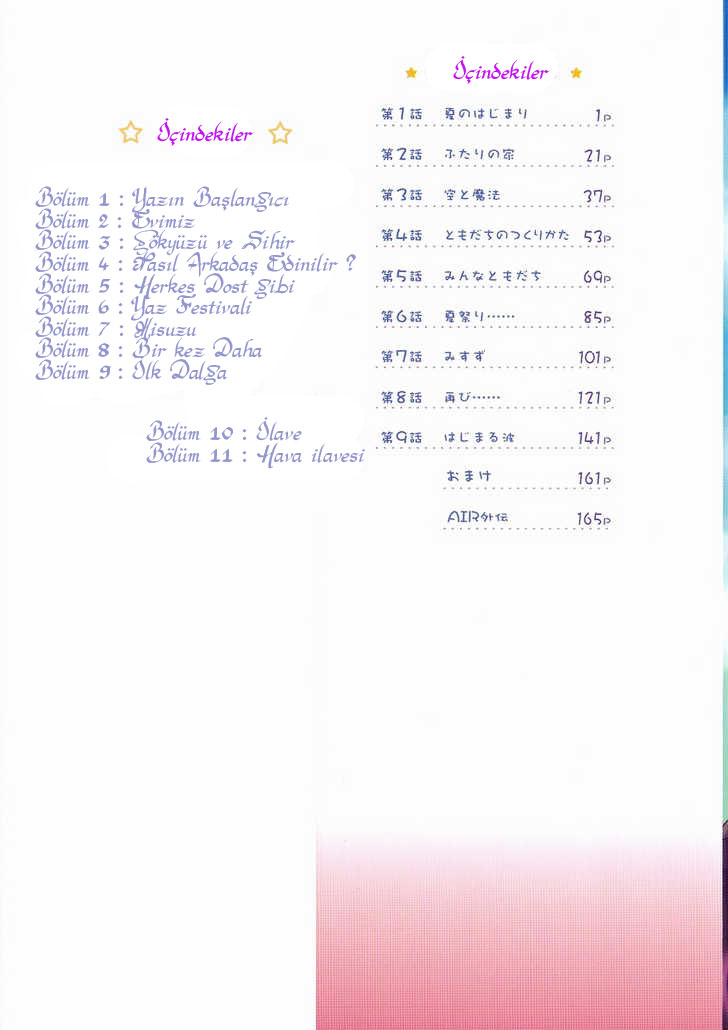 İçindekiler
Bölüm 1 : Yazın Başlangıcı
Bölüm 2 : Evimiz
Bölüm 3 : Gökyüzü ve Sihir
Bölüm 4 : Nasıl Arkadaş Edinilir ?
Bölüm 5 : Herkes Dost gibi
Bölüm 6 : Yaz Festivali
Bölüm 7 : Misuzu
Bölüm 8 : Bir kez Daha
Bölüm 9 : İlk Dalga
Bölüm 10 : İlave
Bölüm 11 : Hava ilavesi
İçindekiler
第1話 夏のはじまり 1P
第2話 ふたりの家 21P
第3話 空と魔法 37P
第4話 ともだちのつくりかた 53P
第5話 みんなともだち 69P
第6話 夏祭り…… 85P
第7話 みすず 101P
第8話 再び…… 121P
第9話 はじまる波 141P
おまけ 161P
AIR外伝 165P